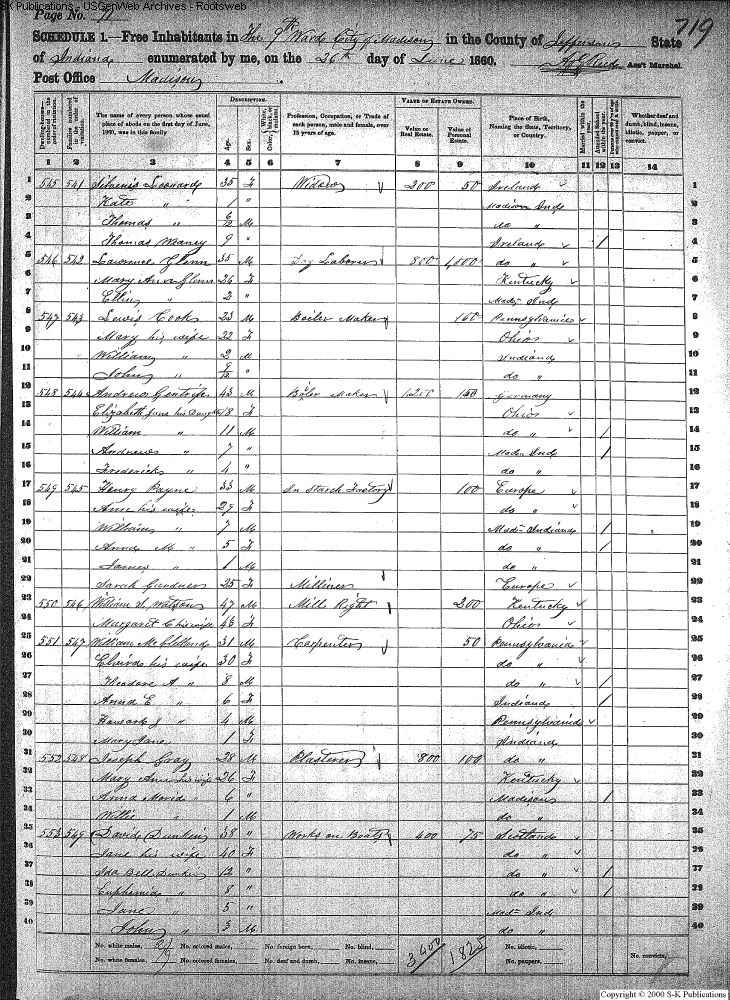 S-K Publications - USGenWeb Archives - Rootsweb
Page No. 11
719
SCHEDULE 1.—Free Inhabitants in The 9th Ward City of Madison in the County of Jefferson State
of Indiana enumerated by me, on the 26th day of June 1860. Ass't Marshal.
Post Office Madison
DESCRIPTION. VALUE OF ESTATE OWNED.
The name of every person whose usual place of abode on the first day of June, 1860, was in this family
Age. Sex. Color, White, black, or mulatto.
Profession, Occupation, or Trade of each person, male and female, over 15 years of age.
Value of Real Estate. Value of Personal Estate.
Place of Birth, Naming the State, Territory, or Country.
Married within the year. Attended School within the year.
Whether deaf and dumb, blind, insane, idiotic, pauper, or convict.
1 2 3 4 5 6 7 8 9 10 11 12 13 14
1 545 541 Leonard 35 F Widow 200 50 Ireland 1
2 Kate " 1 " Madison Ind 2
3 Thomas " 6/12 M do " 3
4 Thomas 9 " Ireland / 4
5 546 542 Lawrence Glenn 35 M Day Laborer 800 1,000 do " 5
6 Mary Ann Glenn 26 F Kentucky 6
7 Ellen " 2 " Mad Ind 7
8 547 543 Lewis Cook 23 M Boiler Maker 100 Pennsylvania 8
9 Mary his wife 22 F Ohio 9
10 William " 2 M Indiana 10
11 John " 9/12 " do " 11
12 548 544 Andrew 43 M Boler Maker 1,200 150 Germany 12
13 Elizabeth Jane his Daughter 18 F Ohio 13
14 William " 11 M do " / 14
15 Andrew " 7 " Mad Ind / 15
16 Frederick " 4 " do " 16
17 549 545 Henry Payne 33 M In Starch Factory 100 Europe 17
18 Ann his wife 29 F do " 18
19 William " 7 M Mad Indiana / " 19
20 Anna M " 5 F do " / 20
21 James " 1 M do " 21
22 Sarah Gardner 25 F Milliner Europe 22
23 550 546 William S Watson 47 M Mill Right 200 Kentucky 23
24 Margaret C his wife 43 F Ohio 24
25 551 547 William McClelland 31 M Carpenter 50 Pennsylvania 25
26 Elvira his wife 30 F do " 26
27 Theodore A " 8 M do " / 27
28 Anna E " 6 F Indiana / 28
29 J " 4 M Pennsylvania 29
30 Mary Jane 1 F Indiana 30
31 552 548 Joseph Gray 38 M Plasterer 800 100 do " 31
32 Mary Ann his wife 26 F Kentucky 32
33 Anna Maria 6 " Madison / 33
34 Willie " 1 M do " 34
35 553 549 David Dunkin 38 " Works on Boats 400 75 Scotland 35
36 Jane his wife 40 F do " 36
37 Ida Bell Dunkin 12 " do " /
38 Euphemia " 8 " do " /
39 Jane " 5 " Mad Ind 39
40 John " 3 M do " 40
No. white males, 21 No. colored males, No. foreign born, No. blind, 3400 1825 No. idiotic,
No. white females, 19 No. colored females, No. deaf and dumb, No. insane, No. paupers, No. convicts,
Copyright © 2000 S-K Publications